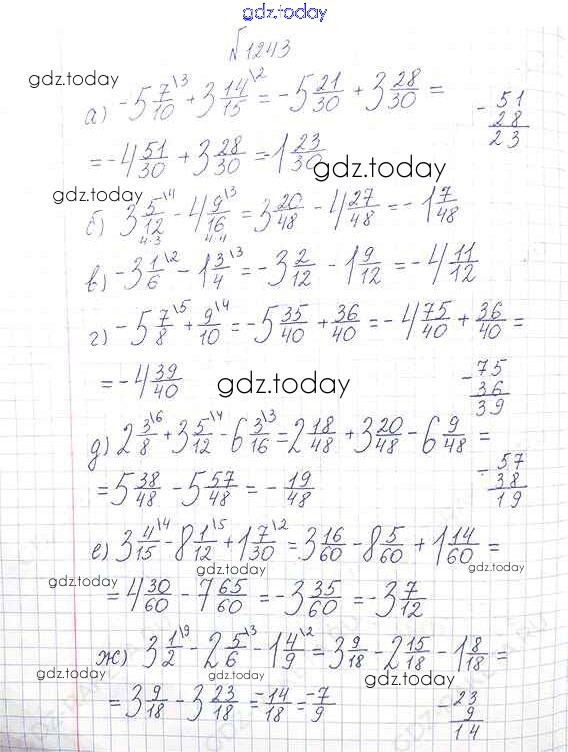 gdz.today
№1243
gdz.today
а) -5 7/10 \3 + 3 14/15 \2 = -5 21/30 + 3 28/30 =
= -4 51/30 + 3 28/30 = 1 23/30
- 51
28
23
gdz.today
gdz.today
б) 3 5/12 \4 - 4 9/16 \3 = 3 20/48 - 4 27/48 = -1 7/48
4·3 4·4
в) -3 1/6 \2 - 1 3/4 \3 = -3 2/12 - 1 9/12 = -4 11/12
г) -5 7/8 \5 + 9/10 \4 = -5 35/40 + 36/40 = -4 75/40 + 36/40 =
= -4 39/40
gdz.today
- 75
36
39
д) 2 3/8 \6 + 3 5/12 \4 - 6 3/16 \3 = 2 18/48 + 3 20/48 - 6 9/48 =
= 5 38/48 - 5 57/48 = - 19/48
- 57
38
19
gdz.today
gdz.today
е) 3 4/15 \4 - 8 1/12 \5 + 1 7/30 \2 = 3 16/60 - 8 5/60 + 1 14/60 =
gdz.today
gdz.today
= 4 30/60 - 7 65/60 = -3 35/60 = -3 7/12
ж) 3 1/2 \9 - 2 5/6 \3 - 1 4/9 \2 = 3 9/18 - 2 15/18 - 1 8/18 =
gdz.today
gdz.today
= 3 9/18 - 3 23/18 = -14/18 = -7/9
- 23
9
14